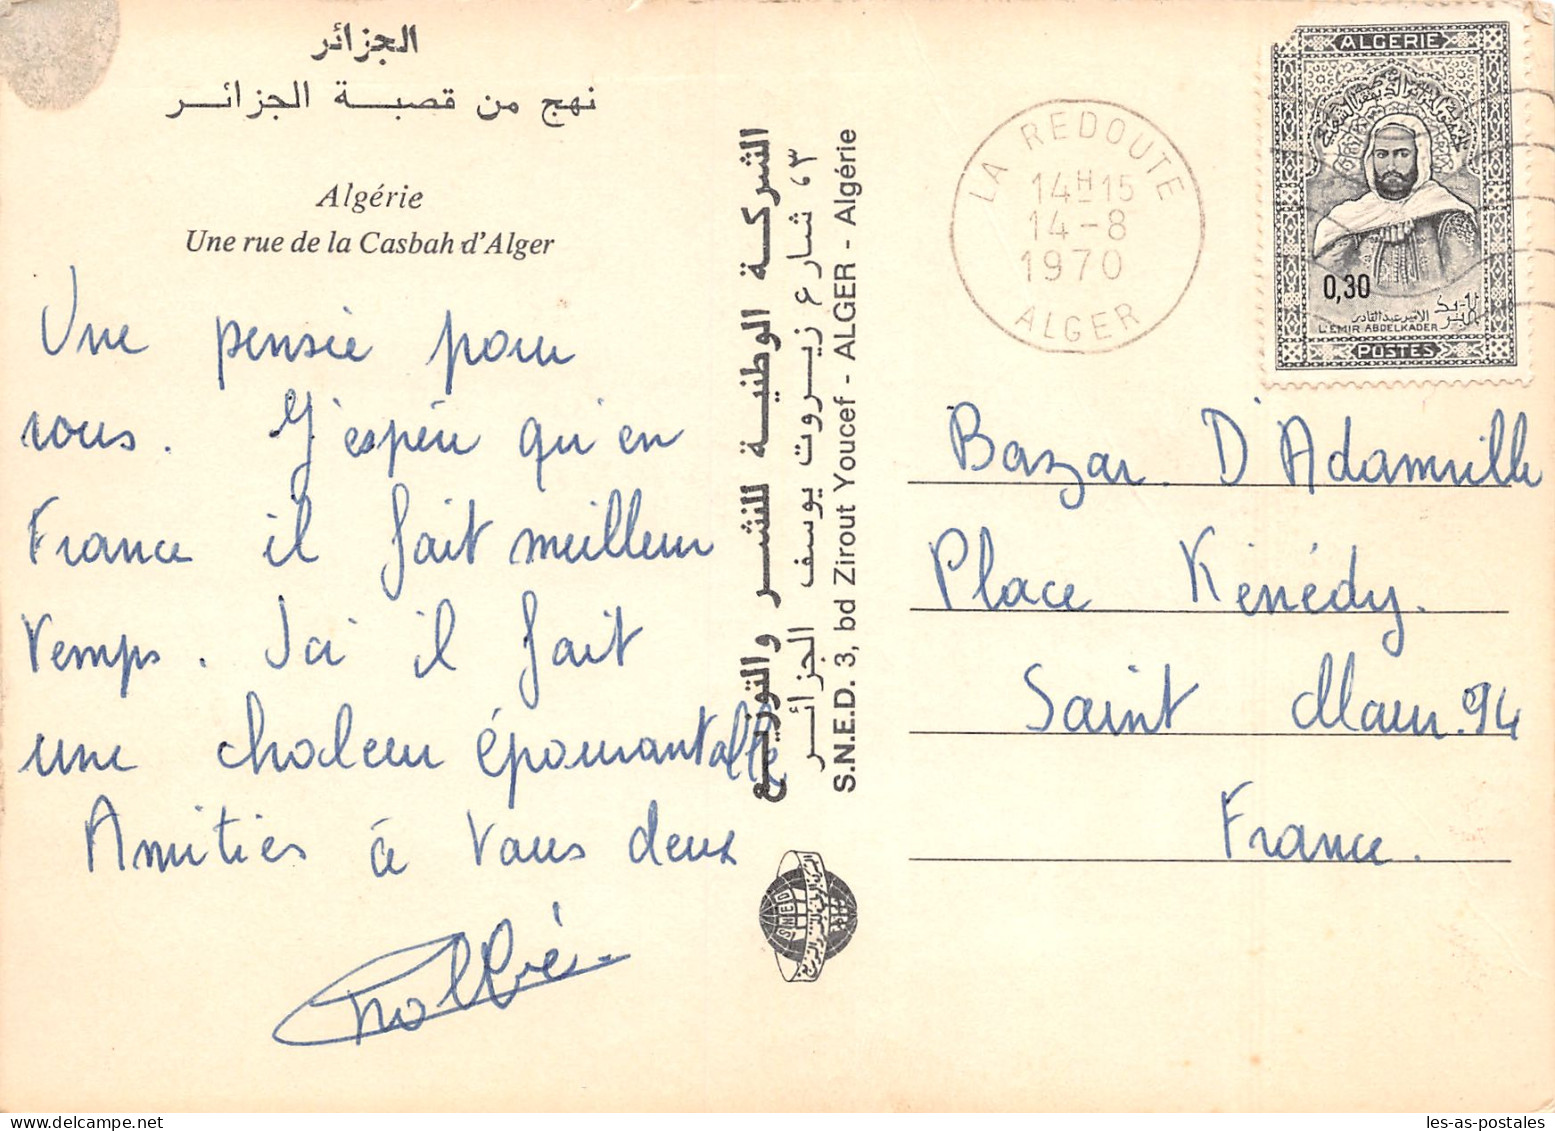 الجزائر
نهج من قصبة الجزائر
Algérie
Une rue de la Casbah d'Alger
Une pensée pour
vous. J'espère qu'en
France il fait meilleur
Temps. Ici il fait
une chaleur épouvantable
Amitiés à vous deux
الشركة الوطنية للنشر والتوزيع
٣، شارع زيروت يوسف الجزائر
S.N.E.D. 3, bd Zirout Youcef - ALGER - Algérie
SNED
LA REDOUTE
14H15
14-8
1970
ALGER
ALGERIE
0,30
الامير عبد القادر
L'EMIR ABDELKADER
بريد
الجزائر
POSTES
Bazar D'Adamville
Place Kénédy.
Saint Maur. 94
France.
les-as-postales